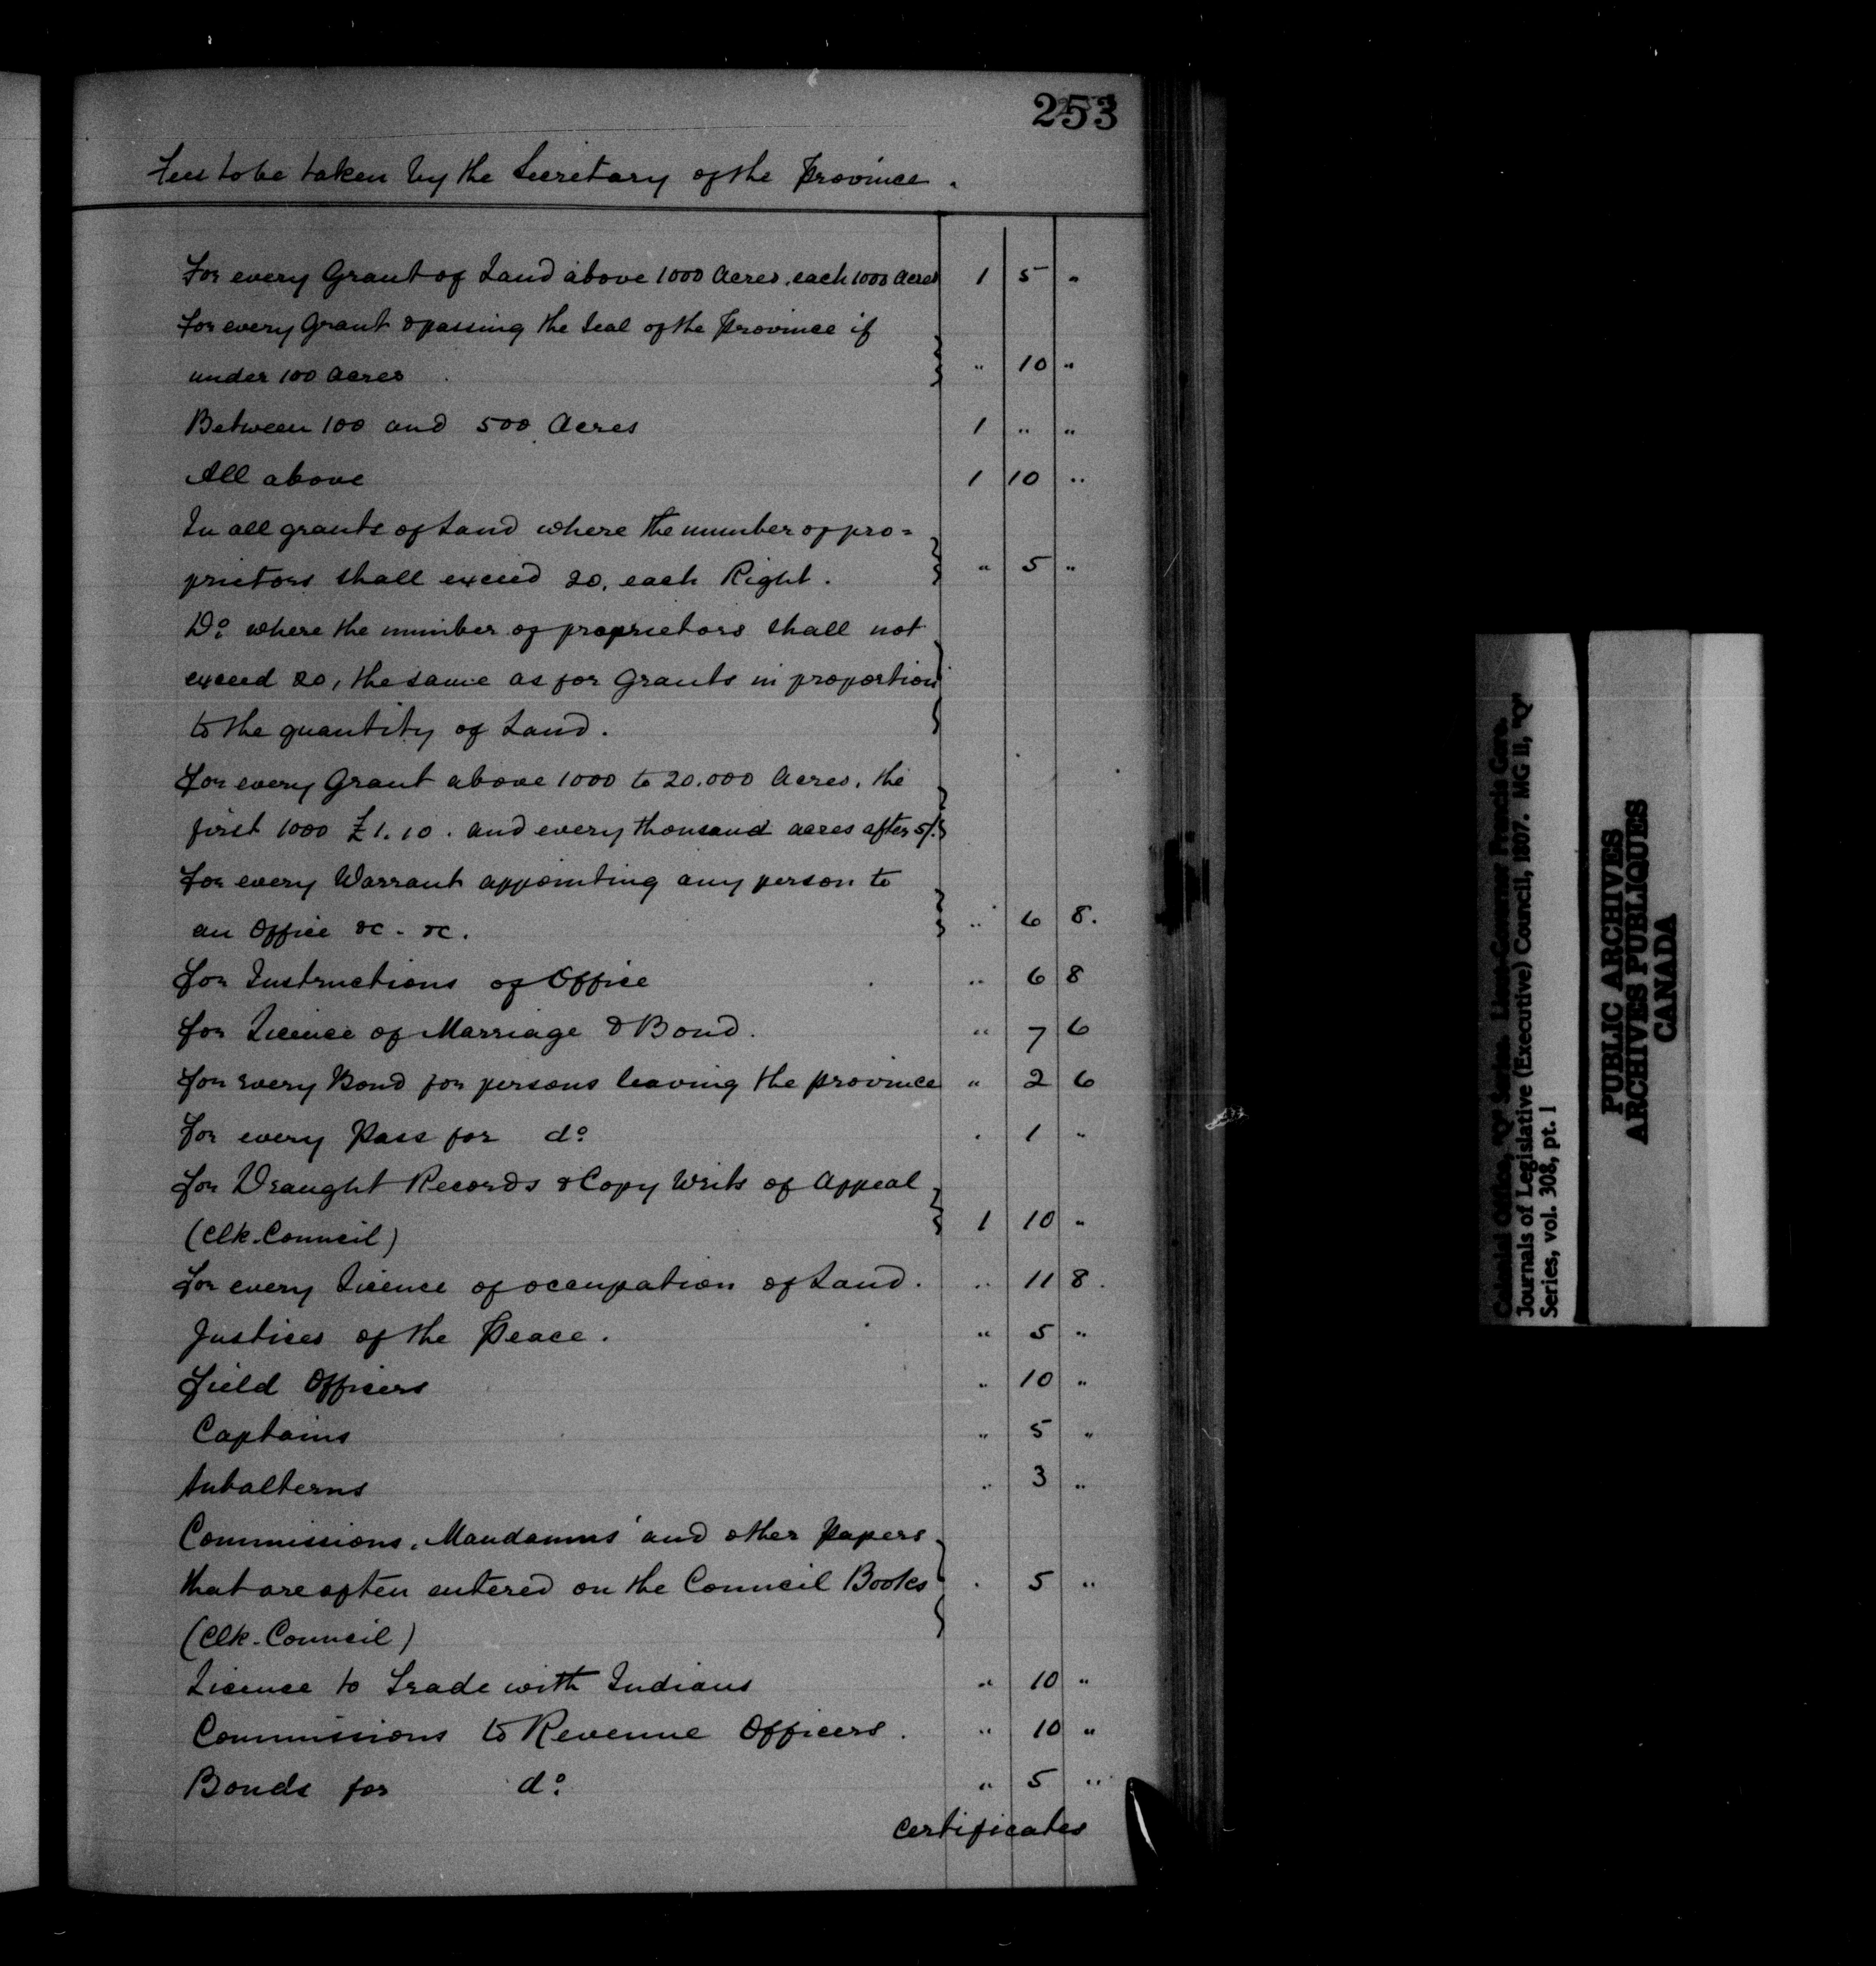 253
Fees to be taken by the Secretary of the Province.
For every Grant of Land above 1000 Acres, each 1000 Acres 1 5 "
For every Grant & passing the Seal of the Province if
under 100 Acres " 10 "
Between 100 and 500 Acres 1 " "
All above 1 10 "
In all grants of Land where the number of pro=
prietors shall exceed 20, each Right. " 5 "
Do. where the number of proprietors shall not
exceed 20, the same as for Grants in proportion
to the quantity of Land.
For every Grant above 1000 to 20.000 Acres, the
first 1000 £1.10. and every thousand acres after 5/.
For every Warrant appointing any person to
an Office &c. &c. " 6 8.
For Instructions of Office " 6 8
For Licence of Marriage & Bond. " 7 6
For every Bond for persons leaving the province " 2 6
For every Pass for do. . 1 "
For Draught Records & Copy Writs of Appeal
(Clk. Council) 1 10 "
For every Licence of occupation of Land. " 11 8.
Justices of the Peace. " 5 "
Field Officers " 10 "
Captains " 5 "
Subalterns " 3 "
Commissions, Mandamus' and other Papers
that are often entered on the Council Books . 5 "
(Clk. Council)
Licence to Trade with Indians " 10 "
Commissions to Revenue Officers. " 10 "
Bonds for do. " 5 "
Certificates
Colonial Office, "Q" Series. Lieut-Governor Francis Gore.
Journals of Legislative (Executive) Council, 1807. MG II, "Q"
Series, vol. 308, pt. 1
PUBLIC ARCHIVES
ARCHIVES PUBLIQUES
CANADA